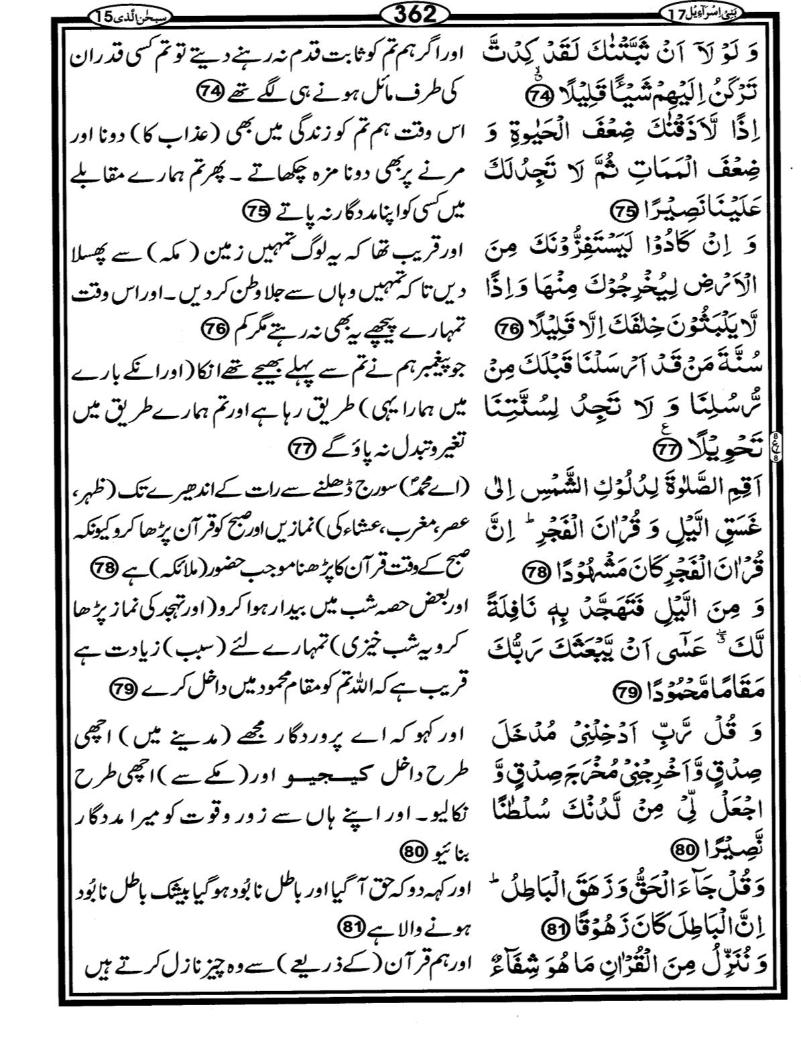 بَنِیْۤ اِسْرَآءِیْل 17
362
سبحٰن الّذی 15
وَ لَوْ لَاۤ اَنْ ثَبَّتْنٰكَ لَقَدْ كِدْتَّ
تَرْكَنُ اِلَیْهِمْ شَیْـًٔا قَلِیْلًا 74
اِذًا لَّاَذَقْنٰكَ ضِعْفَ الْحَیٰوةِ وَ
ضِعْفَ الْمَمَاتِ ثُمَّ لَا تَجِدُ لَكَ
عَلَیْنَا نَصِیْرًا 75
وَ اِنْ كَادُوْا لَیَسْتَفِزُّوْنَكَ مِنَ
الْاَرْضِ لِیُخْرِجُوْكَ مِنْهَا وَ اِذًا
لَّا یَلْبَثُوْنَ خِلٰفَكَ اِلَّا قَلِیْلًا 76
سُنَّةَ مَنْ قَدْ اَرْسَلْنَا قَبْلَكَ مِنْ
رُّسُلِنَا وَ لَا تَجِدُ لِسُنَّتِنَا
تَحْوِیْلًا 77
اَقِمِ الصَّلٰوةَ لِدُلُوْكِ الشَّمْسِ اِلٰى
غَسَقِ الَّیْلِ وَ قُرْاٰنَ الْفَجْرِ ؕ اِنَّ
قُرْاٰنَ الْفَجْرِ كَانَ مَشْهُوْدًا 78
وَ مِنَ الَّیْلِ فَتَهَجَّدْ بِهٖ نَافِلَةً
لَّكَ ۖۗ عَسٰۤى اَنْ یَّبْعَثَكَ رَبُّكَ
مَقَامًا مَّحْمُوْدًا 79
وَ قُلْ رَّبِّ اَدْخِلْنِیْ مُدْخَلَ
صِدْقٍ وَّ اَخْرِجْنِیْ مُخْرَجَ صِدْقٍ وَّ
اجْعَلْ لِّیْ مِنْ لَّدُنْكَ سُلْطٰنًا
نَّصِیْرًا 80
وَ قُلْ جَآءَ الْحَقُّ وَ زَهَقَ الْبَاطِلُ ؕ
اِنَّ الْبَاطِلَ كَانَ زَهُوْقًا 81
وَ نُنَزِّلُ مِنَ الْقُرْاٰنِ مَا هُوَ شِفَآءٌ
اور اگر ہم تم کو ثابت قدم نہ رہنے دیتے تو تم کسی قدر ان
کی طرف مائل ہونے ہی لگے تھے 74
اس وقت ہم تم کو زندگی میں بھی (عذاب کا) دونا اور
مرنے پر بھی دونا مزہ چکھاتے ۔ پھر تم ہمارے مقابلے
میں کسی کو اپنا مددگار نہ پاتے 75
اور قریب تھا کہ یہ لوگ تمہیں زمین (مکہ) سے پھسلا
دیں تا کہ تمہیں وہاں سے جلا وطن کر دیں ۔ اور اس وقت
تمہارے پیچھے یہ بھی نہ رہتے مگر کم 76
جو پیغمبر ہم نے تم سے پہلے بھیجے تھے انکا (اور انکے بارے
میں ہمارا یہی) طریق رہا ہے اور تم ہمارے طریق میں
تغیر و تبدل نہ پاؤ گے 77
(اے محمدؐ) سورج ڈھلنے سے رات کے اندھیرے تک (ظہر،
عصر، مغرب، عشاء کی) نمازیں اور صبح کو قرآن پڑھا کرو کیونکہ
صبح کے وقت قرآن کا پڑھنا موجب حضور (ملائکہ) ہے 78
اور بعض حصہ شب میں بیدار ہوا کرو (اور تہجد کی نماز پڑھا
کرو یہ شب خیزی) تمہارے لئے (سبب) زیادت ہے
قریب ہے کہ اللہ تم کو مقام محمود میں داخل کرے 79
اور کہو کہ اے پروردگار مجھے (مدینے میں) اچھی
طرح داخل کیجیو اور (مکے سے) اچھی طرح
نکالیو ۔ اور اپنے ہاں سے زور و قوت کو میرا مددگار
بنائیو 80
اور کہہ دو کہ حق آ گیا اور باطل نابود ہو گیا بیشک باطل نابود
ہونے والا ہے 81
اور ہم قرآن (کے ذریعے) سے وہ چیز نازل کرتے ہیں